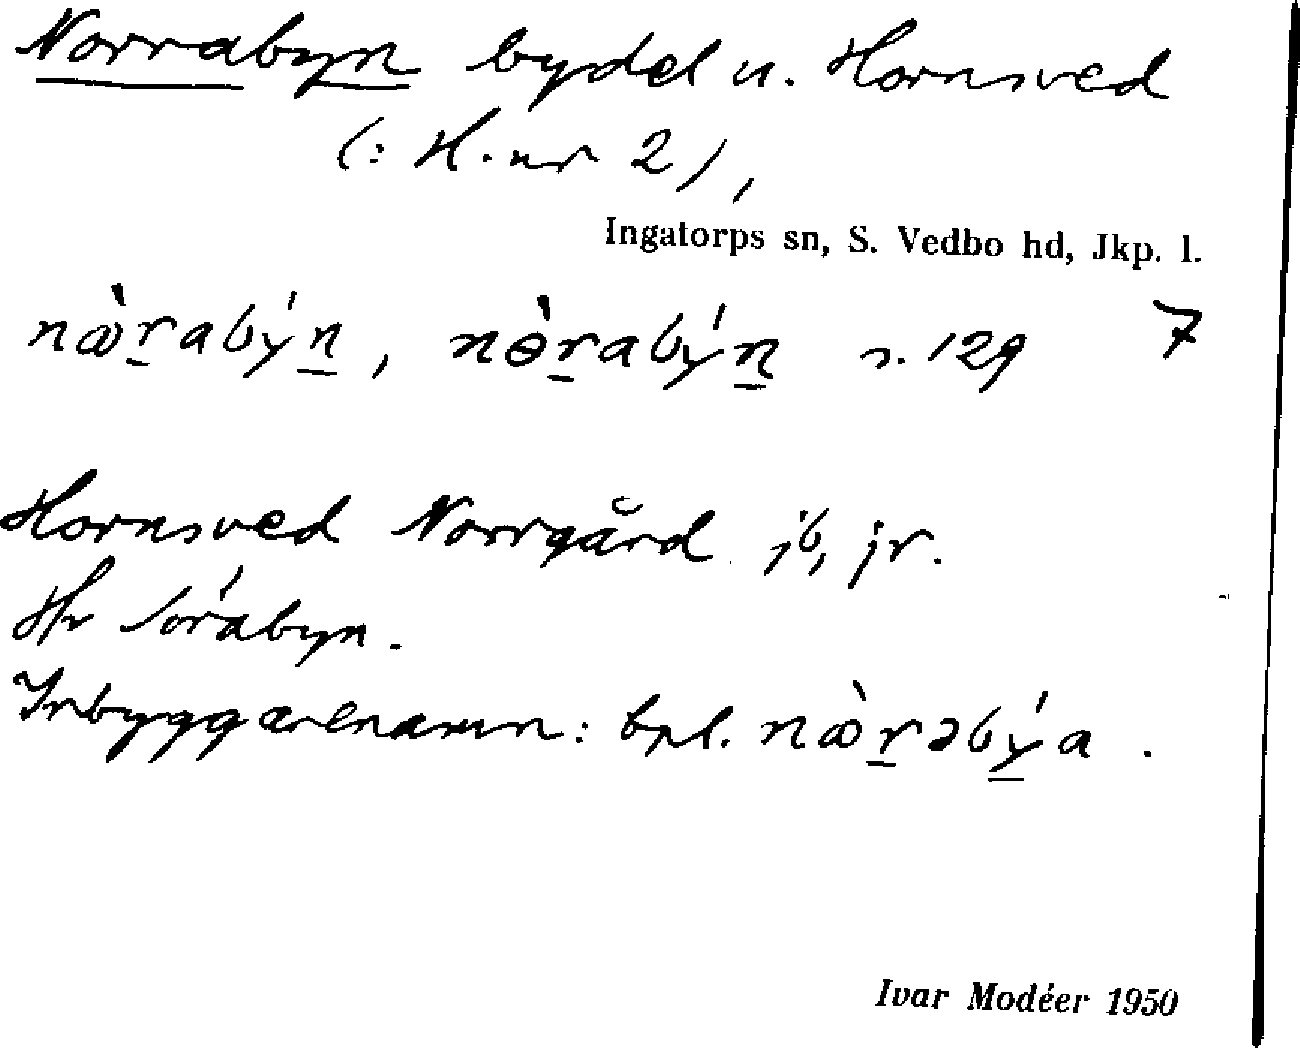 Norrabyn bydel u. Hornsved
(: H. nr 2),
Ingatorps sn, S. Vedbo hd, Jkp. l.
næ̀r̲abýn̲, nɵ̀r̲abýn̲ s. 129 7
Hornsved Norrgård jb, jr.
Hr Sörabyn.
Inbyggarenamn: bpl. næ̀r̲əbý̲a.
Ivar Modéer 1950